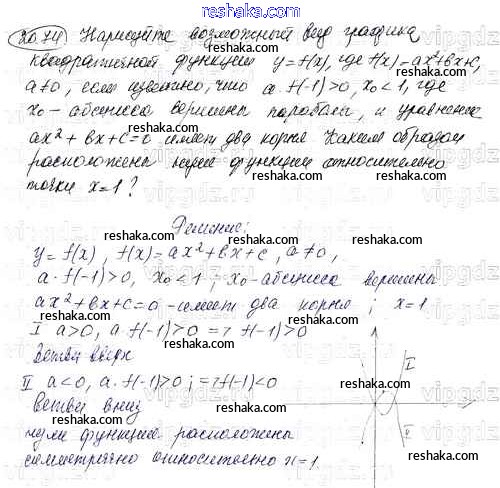 www.reshaka.com
20.74 Нарисуйте возможный вид графика
квадратичной функции y=f(x), где f(x)=ax²+вx+c,
a≠0, если известно, что a·f(-1)>0, x₀<1, где
x₀ - абсцисса вершины параболы, и уравнение
ax²+вx+c=0 имеет два корня. Каким образом
расположены нули функции относительно
точки x=1?
Решение:
y=f(x), f(x)=ax²+вx+c, a≠0,
a·f(-1)>0, x₀<1; x₀ - абсцисса вершины
ax²+вx+c=0 - имеет два корня; x=1
I a>0, a·f(-1)>0 => f(-1)>0
Ветви вверх
II a<0, a·f(-1)>0; => f(-1)<0
Ветви вниз
нули функции расположены
симметрично относительно x=1.
I
II
reshaka.com
vipgdz.ru